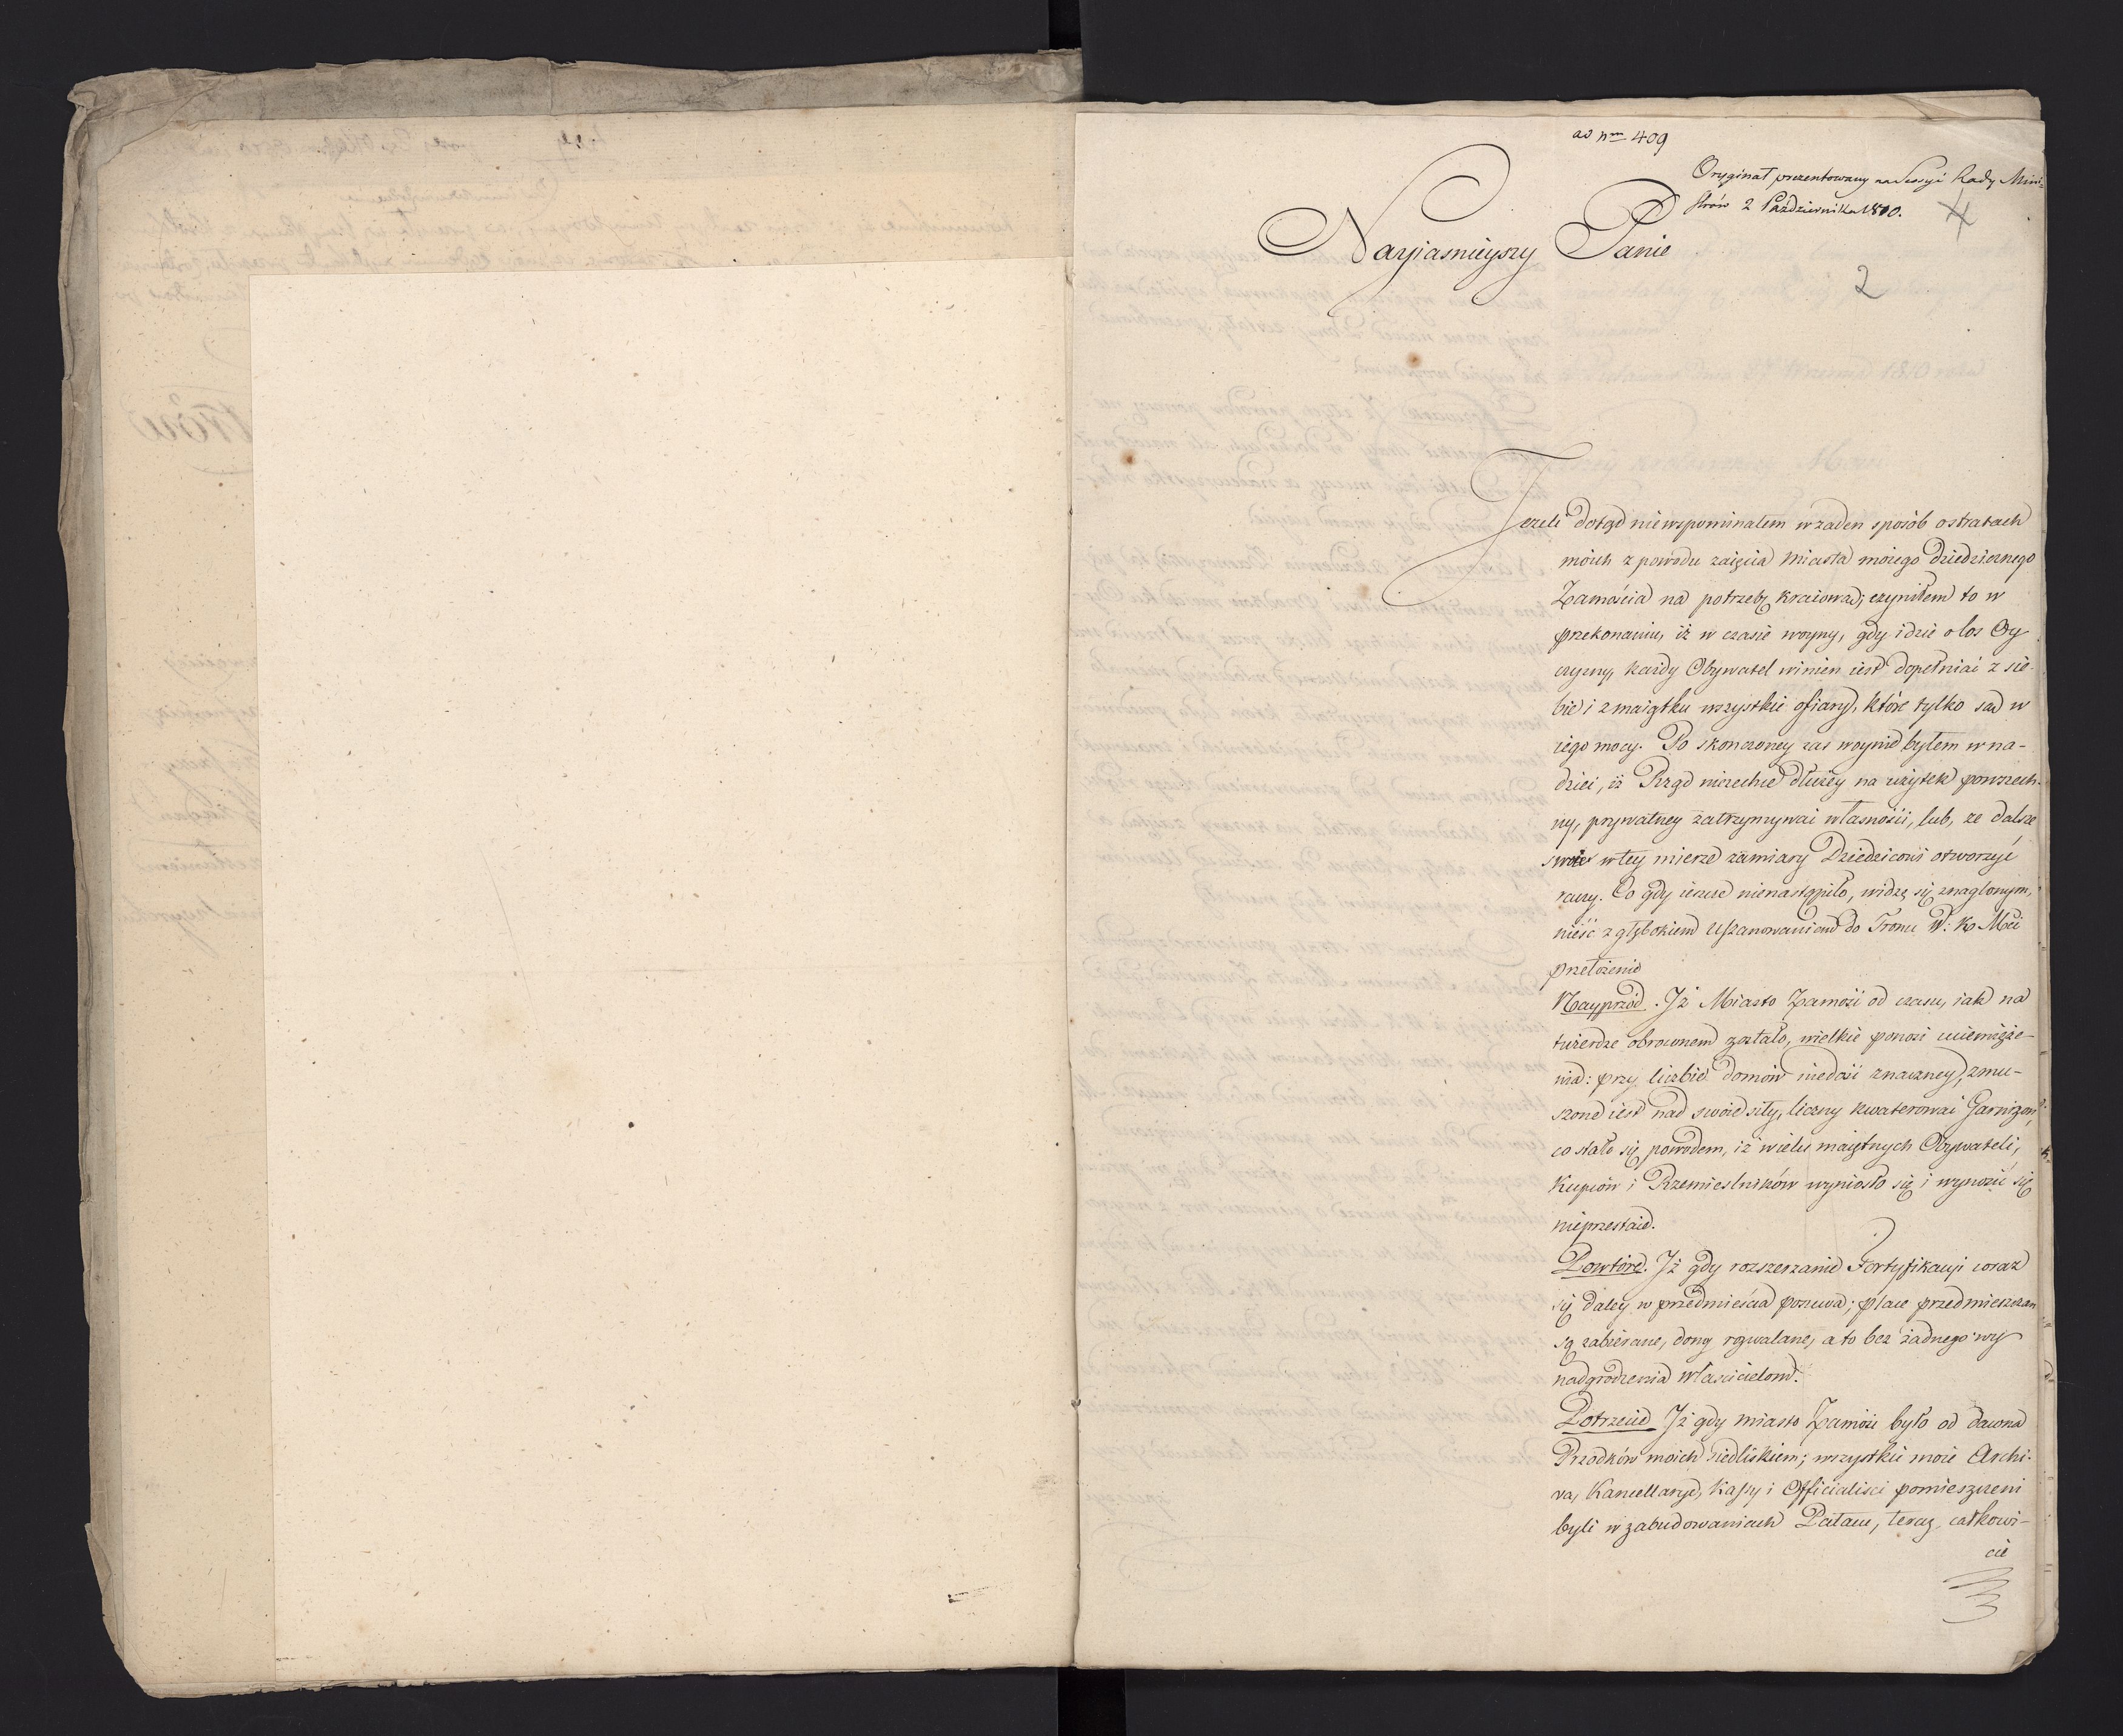 ad nm 409
Oryginał prezentowany na Sessyi Rady Mini-
strów 2 Października 1810.
4
Nayjaśnieyszy Panie
2
Jeżeli dotąd niewspominałem w żaden sposób o stratach
moich z powodu zaięcia Miasta moiego Dziedzicznego
Zamościa na potrzebę kraiową; czyniłem to w
przekonaniu, iż w czasie woyny, gdy idzie o los Oy-
czyzny, każdy Obywatel winien iest dopełniać z sie-
bie i z maiątku wszystkie ofiary, które tylko są w
iego mocy. Po skończoney zaś woynie byłem w na-
dziei, iż Rząd niezechce dłużey na użytek powszech-
ny, prywatney zatrzymywać własności, lub, że dalsze
swoie w tey mierze zamiary Dziedzicowi otworzyć
raczy. Co gdy ieszcze nienastąpiło, widzę się znaglonym,
nieść z głębokiem Uszanowaniem do Tronu W: K Mci
przełożenie
Nayprzód. Iż Miasto Zamość od czasu, iak na
twierdze obrocone zostało, wielkie ponosi uciemięże-
nia: przy liczbie domów niedość znaczney, zmu-
szone iest nad swoie siły, liczny kwaterować Garnizon,
co stało się powodem, iż wielu maiętnych Obywateli,
Kupców i Rzemieslników wyniosło się i wynosić się
nieprzestaie.
Powtóre. Iż gdy rozszerzanie Fortyfikacyi coraz
się daley w przedmieścia posuwa; place przedmieszczan
są zabierane, domy rozwalane, a to bez żadnego wy-
nadgrodzenia właścicielom.
Potrzecie Iż gdy miasto Zamość było od dawna
Przodków moich siedliskiem; wszystkie moie Archi-
va, Kancellarye, Kassy i Officialisci pomieszczeni
byli w zabudowaniach Pałacu, teraz, całkowi-
cie